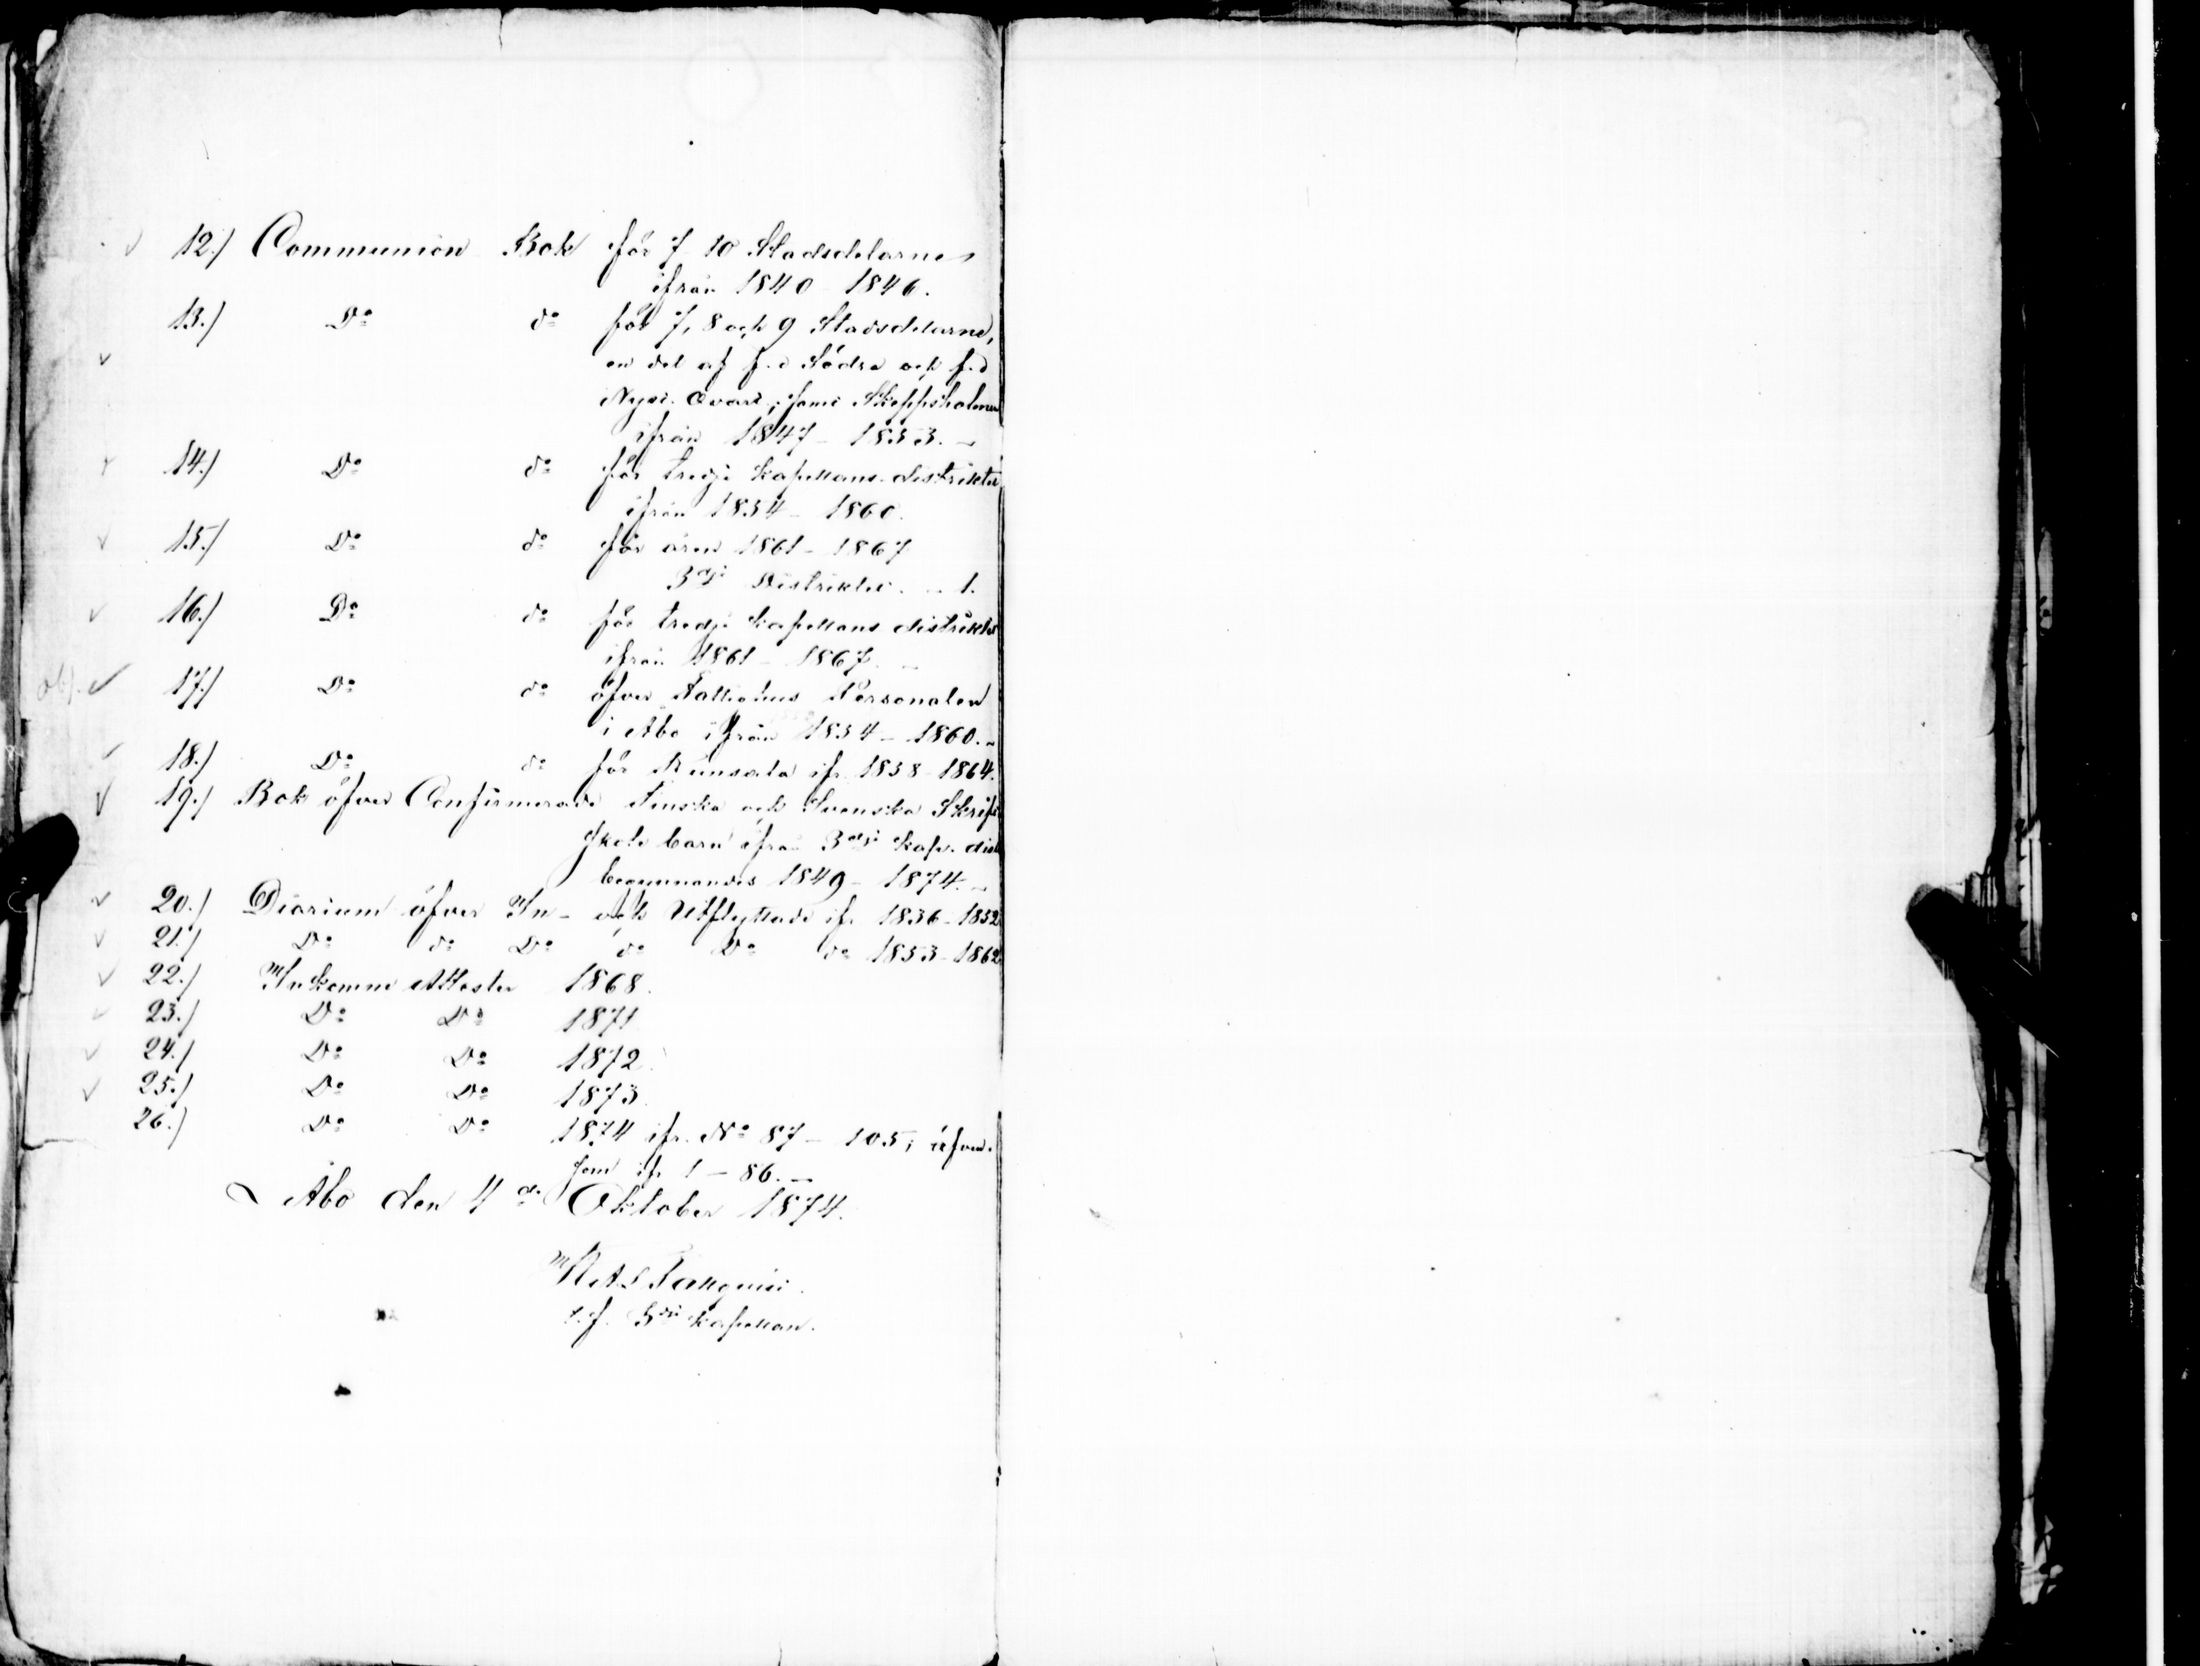 12.) Communion Bok för 7-10 Stadsdelarne
ifrån 1840-1846.
13.) Do do för 7, 8 och 9 Stadsdelarne,
en del af f.d Södra och f.d
Nya Qvart., samt Skeppsholmen
ifrån 1847-1853. -
14.) Do do för tredje kapellans-distriktet
ifrån 1854-1860.
15.) Do do för åren 1861-1867
3dje Distriktet. 1.
16.) Do do för tredje kapellans distriktet
ifrån 1861-1867. -
obs. 17.) Do do öfver Fattighus Personalen
i Åbo ifrån 1854-1860. -
18.) Do do för Runsala ifr. 1858-1864.
19.) Bok öfver Confirmerade Finska och Svenska Skrift
skole barn ifrån 3dje Kap. dist
begynnandes 1849-1874. -
20.) Diarium öfver In- och Utflyttade ifr. 1836-1852
21.) Do do Do do Do do 1853-1862
22.) Inkomne Attester 1868.
23.) Do Do 1871
24.) Do Do 1872.
25.) Do Do 1873.
26.) Do Do 1874 ifr. No 87-105; äfven-
som ifr 1-86. -
Åbo den 4de Oktober 1874.
Tallqvist.
t.f. 3dje kapellan.